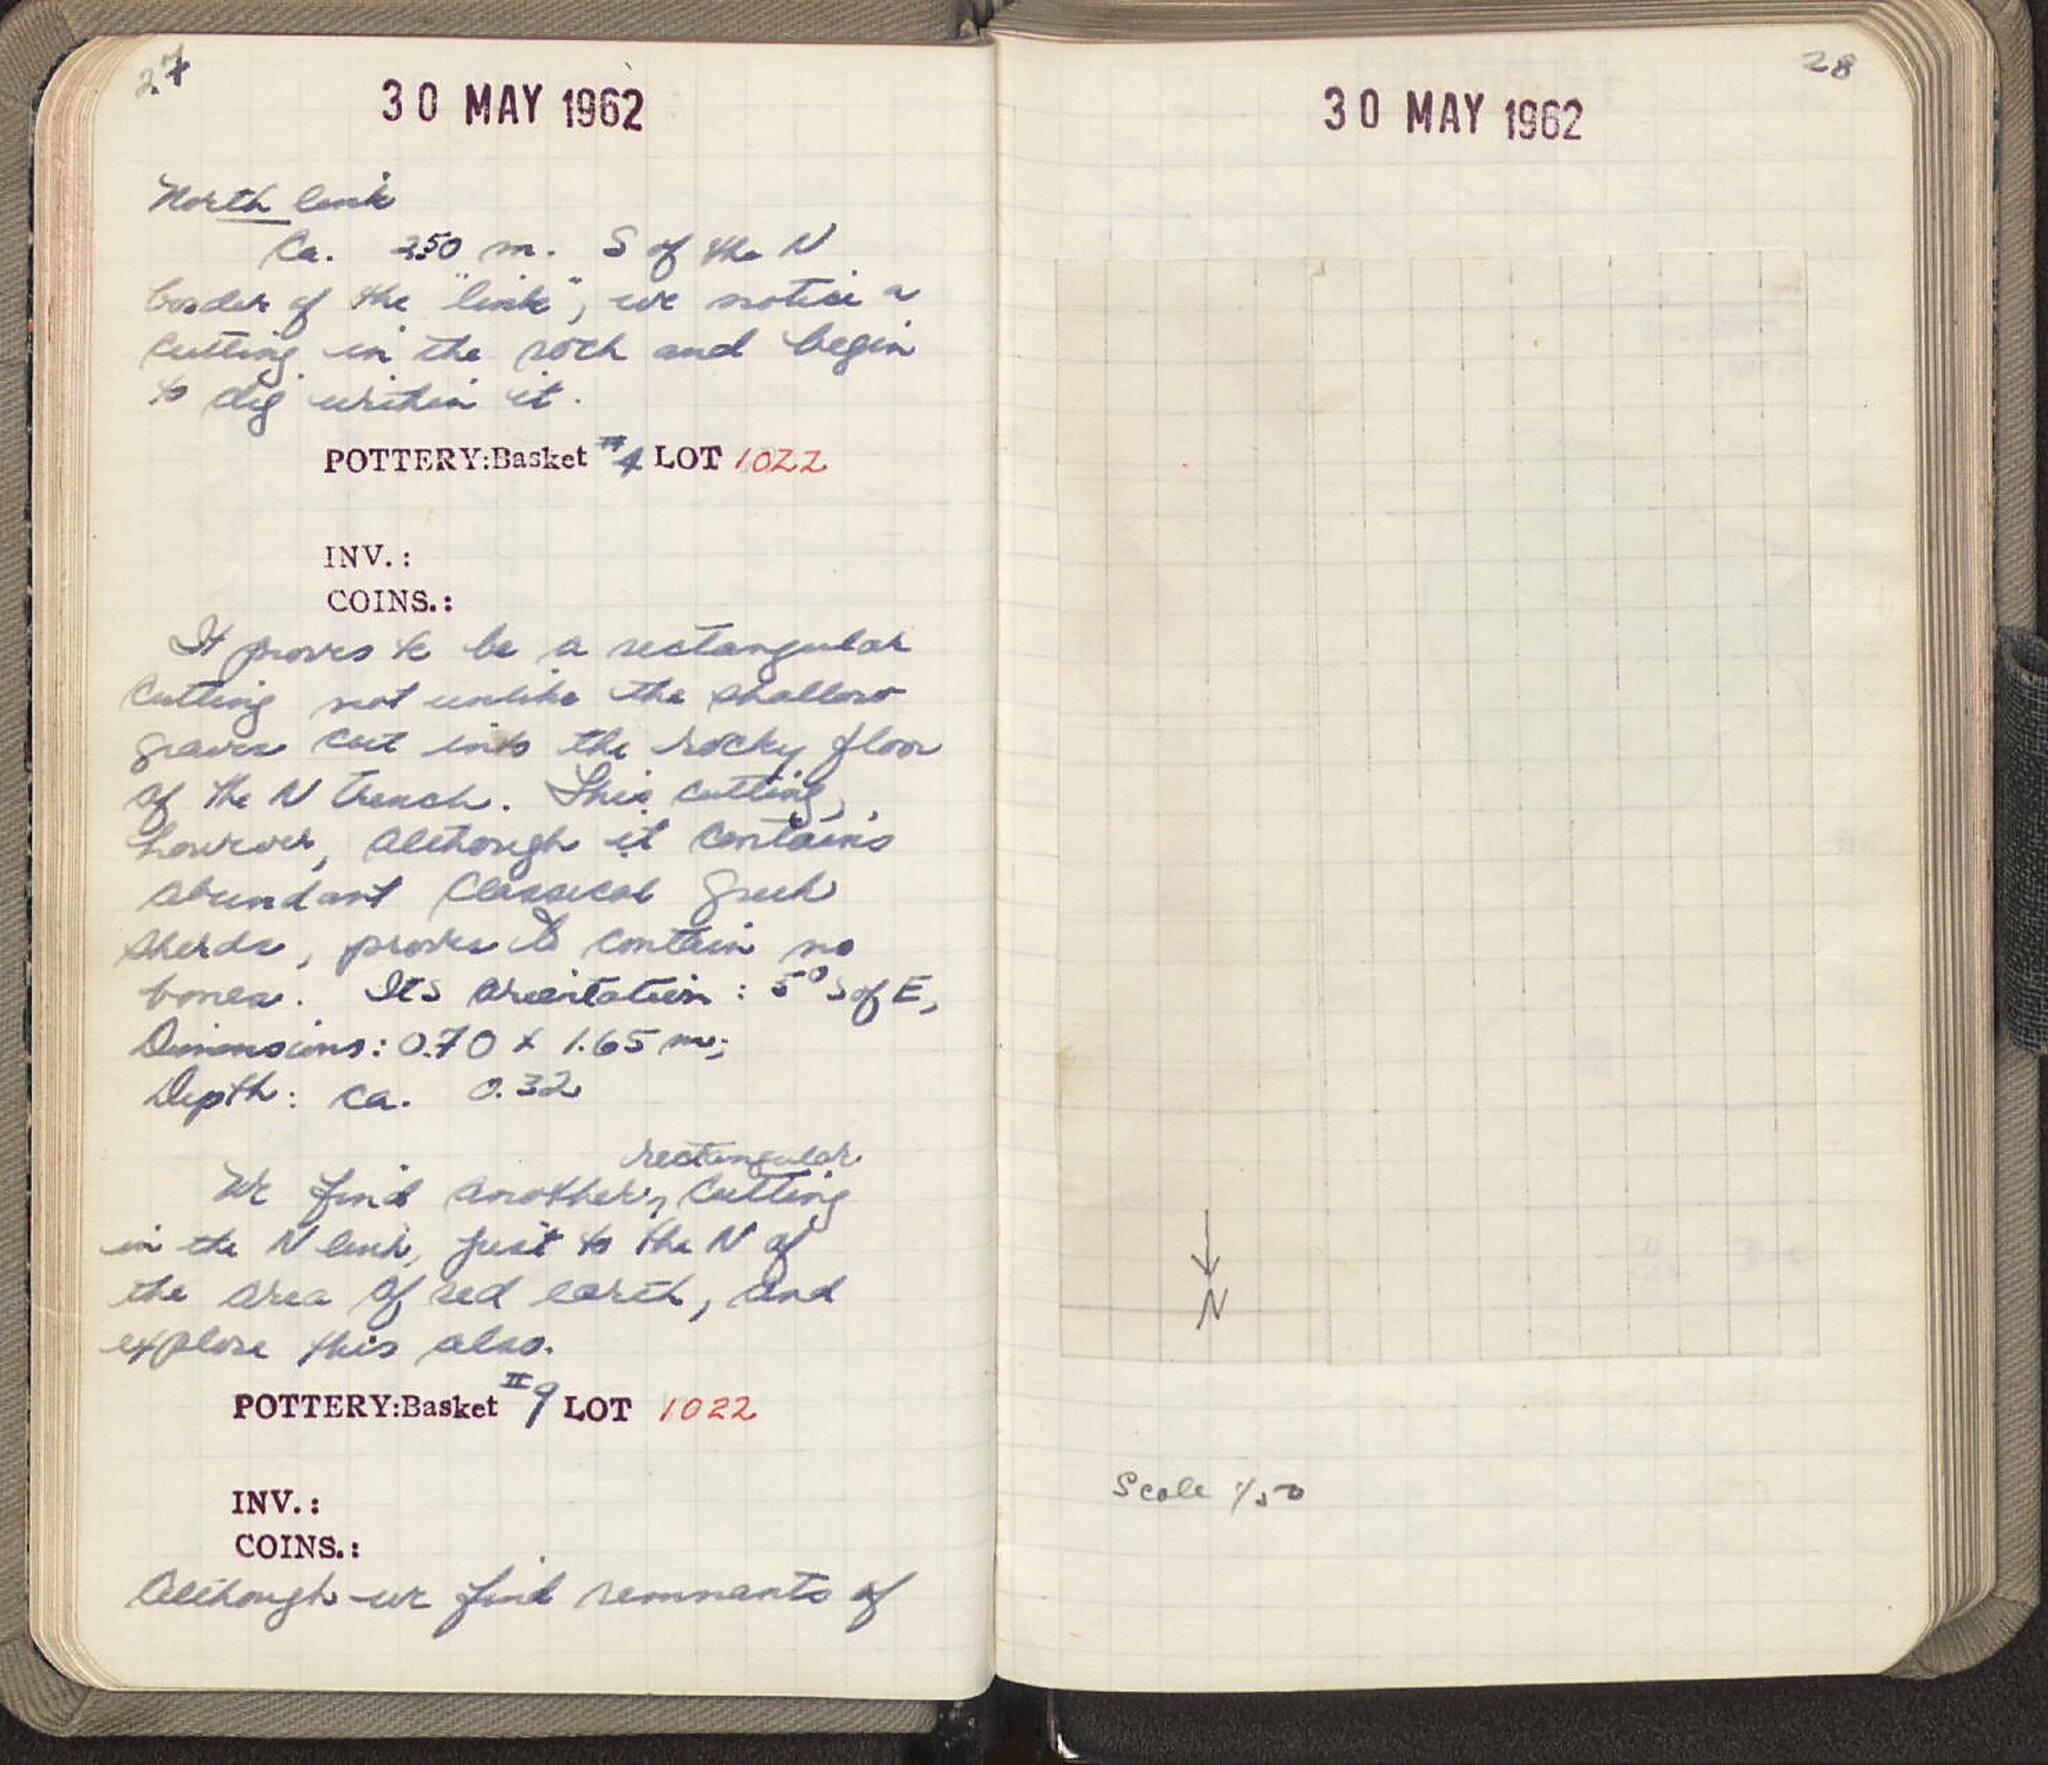 27
30 MAY 1962
North link
Ca. 3.50 m. S of the N
border of the "link", we notice a
cutting in the rock and begin
to dig within it.
POTTERY:Basket #4 LOT 1022
INV.:
COINS.:
It proves to be a rectangular
cutting not unlike the shallow
graves cut into the rocky floor
of the N trench. This cutting,
however, although it contains
abundant Classical Greek
sherds, proves to contain no
bones. Its orientation: 5° S of E,
Dimensions: 0.70 x 1.65 m;
Depth: ca. 0.32
rectangular
We find another cutting
in the N link, just to the N of
the area of red earth, and
explore this also.
POTTERY:Basket #9 LOT 1022
INV.:
COINS.:
Although we find remnants of
28
30 MAY 1962
N
Scale 1/50